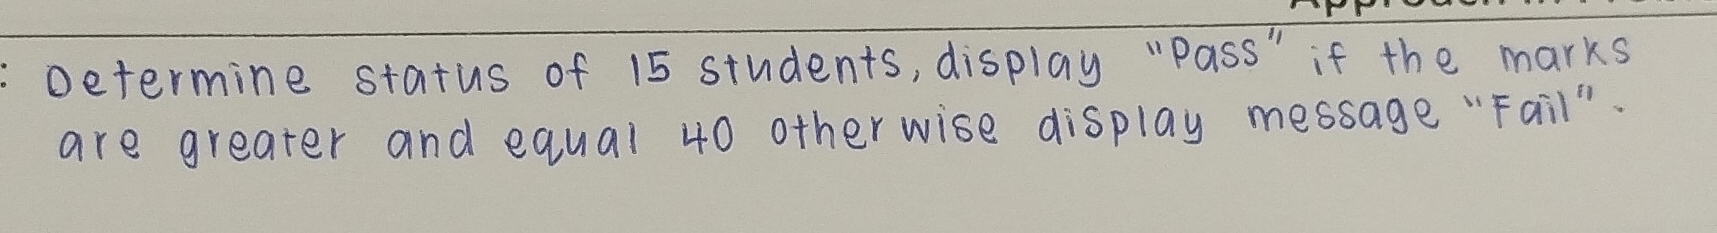 : Determine status of 15 students, display "Pass" if the marks
are greater and equal 40 otherwise display message "Fail".